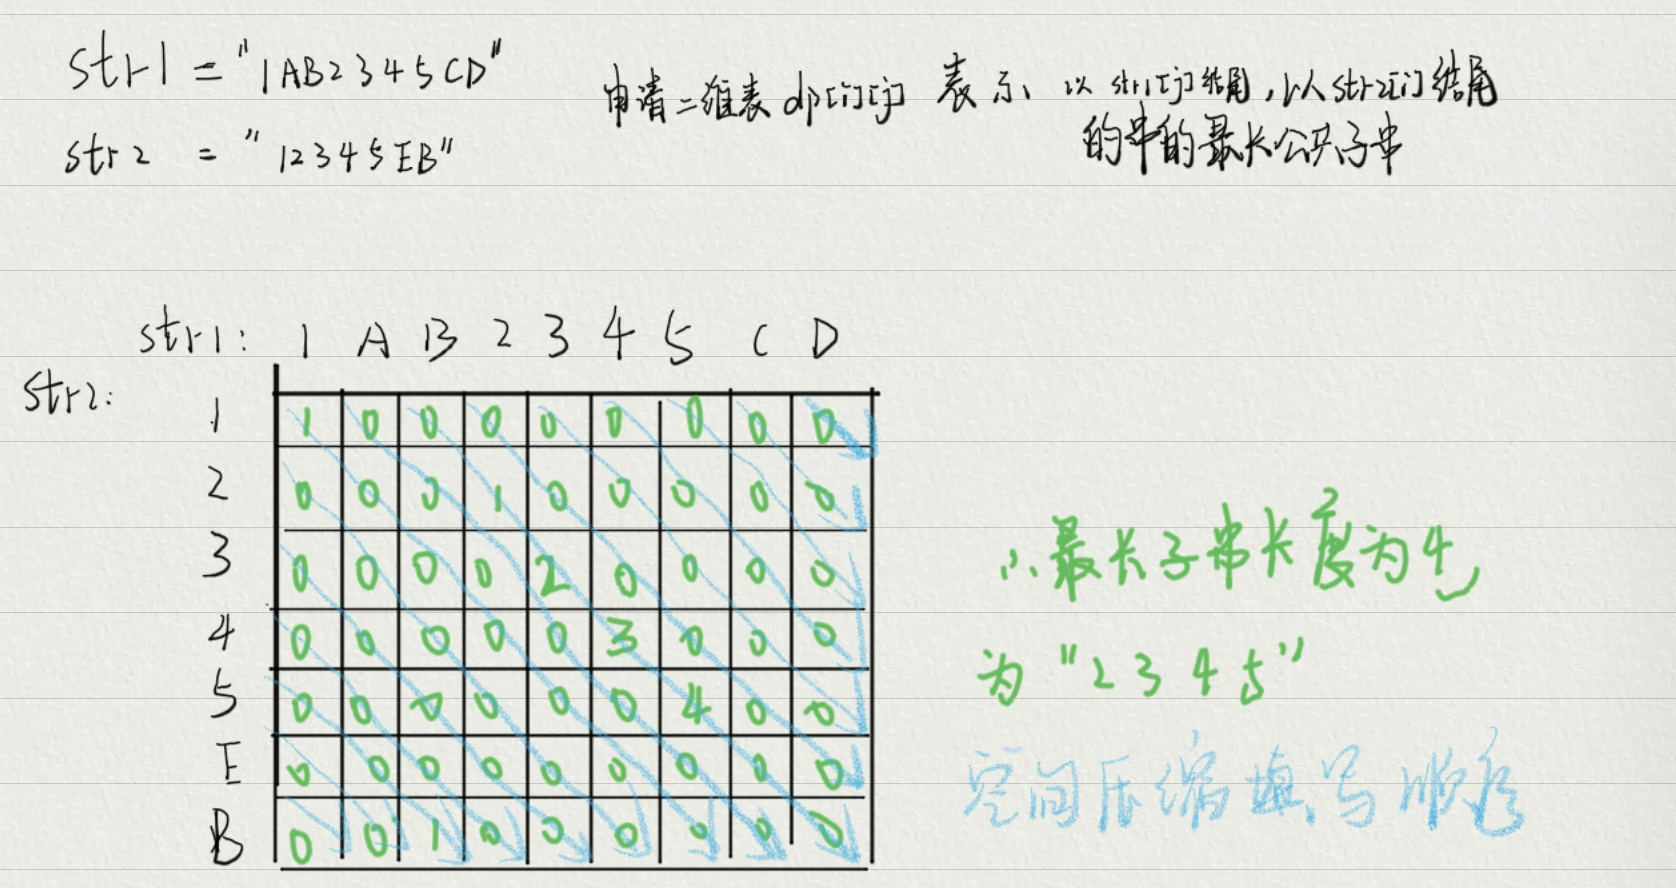 str1 = "1AB2345CD"
申请二维表 dp[i][j] 表示、以 str1[j]结尾,以str2[i]结尾
的串的最长公共子串
str2 = "12345EB"
str1: 1 A B 2 3 4 5 C D
str2:
1 1 0 0 0 0 0 0 0 0
2 0 0 0 1 0 0 0 0 0
3 0 0 0 0 2 0 0 0 0
4 0 0 0 0 0 3 0 0 0
5 0 0 0 0 0 0 4 0 0
E 0 0 0 0 0 0 0 0 0
B 0 0 1 0 0 0 0 0 0
∴最长子串长度为4
为"2345"
空间压缩填写顺序